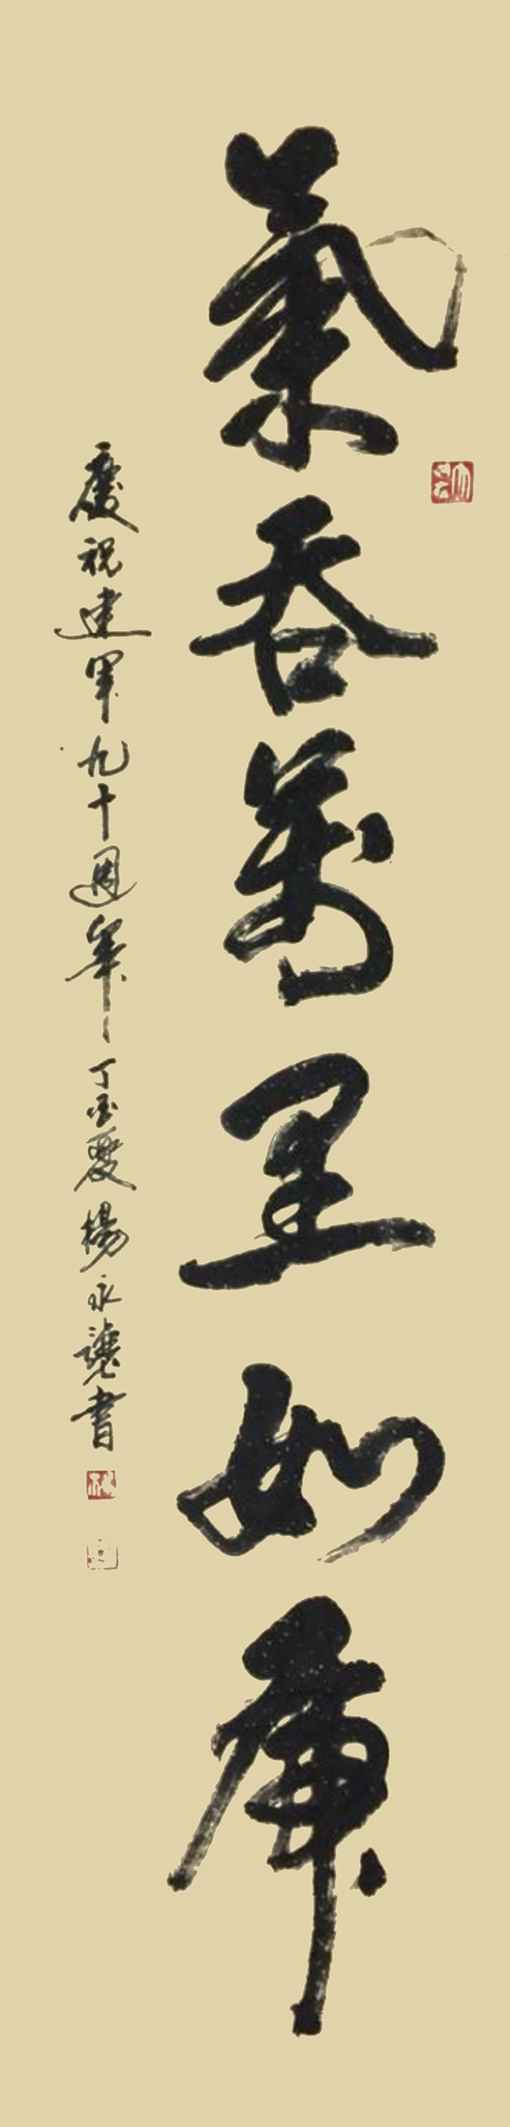 氣吞萬里如虎
慶祝建軍九十週年丁酉夏楊永讓書